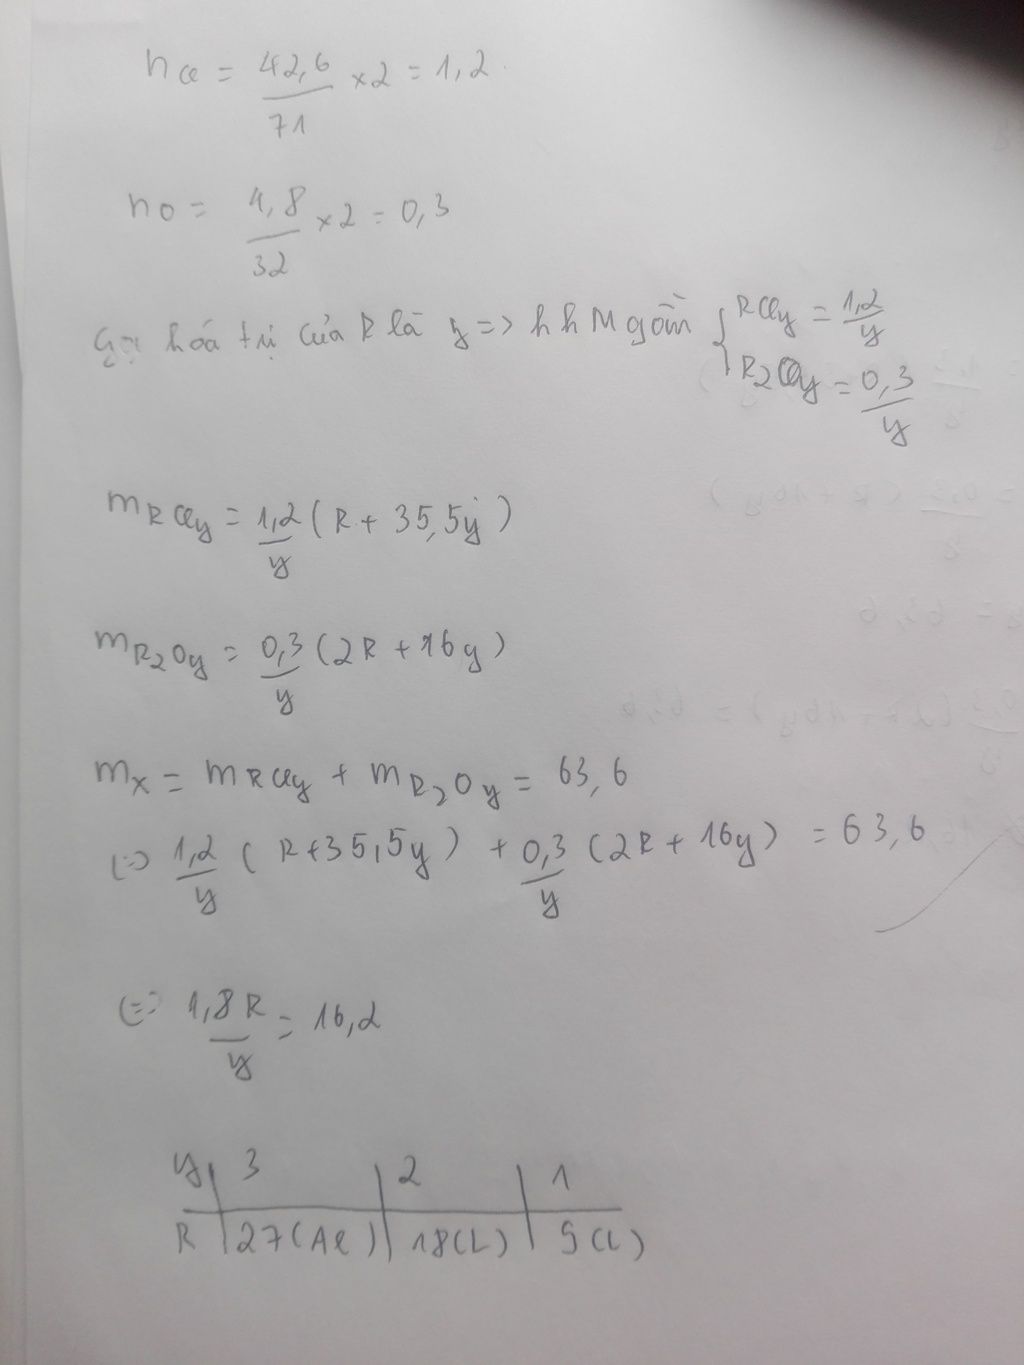 nCl = 42,6/71 ×2 = 1,2
nO = 4,8/32 ×2 = 0,3
Gọi hóa trị của R là y => hh M gồm { RCly = 1,2/y
R2Oy = 0,3/y
mRCly = 1,2/y (R + 35,5y)
mR2Oy = 0,3/y (2R + 16y)
mX = mRCly + mR2Oy = 63,6
(=) 1,2/y (R+35,5y) + 0,3/y (2R + 16y) = 63,6
(=) 1,8R/y = 16,2
y | 3 | 2 | 1
R | 27(Al) | 18(L) | 9(L)